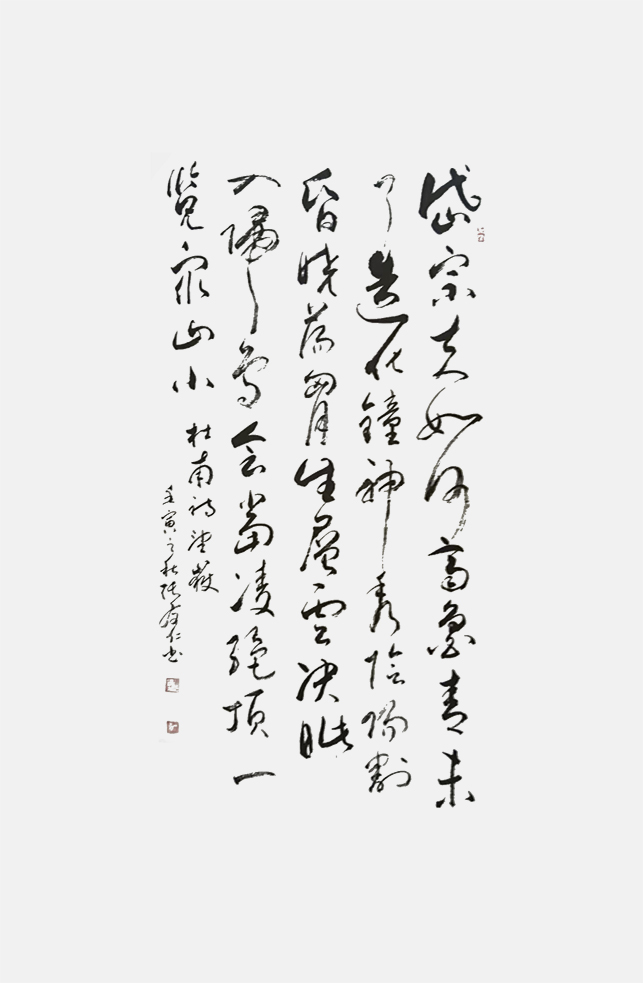 岱宗夫如何齊魯青未
了造化鐘神秀陰陽割
昏曉蕩胷生層雲決眦
入歸鳥會當凌絕頂一
覽眾山小 杜甫詩望嶽
壬寅之秋張仁书